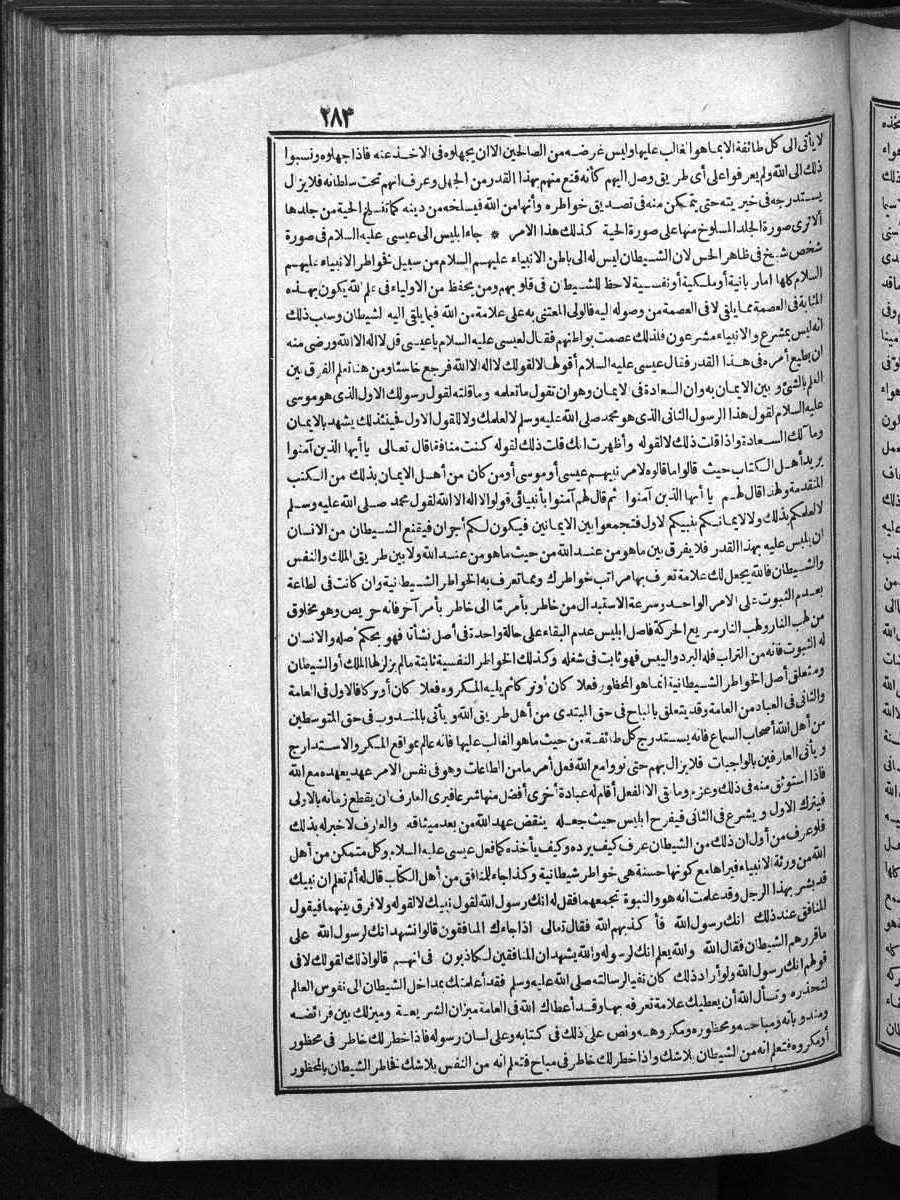 ٢٨٤
لا يأتى الى كل طائفة الا بما هو الغالب عليها وليس غرضه من الصالحين الا ان يجهلوه فى الاخذ عنه فاذا جهلوه ونسبوا
ذلك الى الله ولم يعرفوا على أى طريق وصل اليهم كأنه قنع منهم بهذا القدر من الجهل وعرف انهم تحت سلطانه فلا يزال
يستدرجه فى خيريته حتى يتمكن منه فى تصديق خواطره وأنها من الله فيسلخه من دينه كما تنسلخ الحية من جلدها
ألا ترى صورة الجلد المسلوخ منها على صورة الحية كذلك هذا الامر * جاء ابليس الى عيسى عليه السلام فى صورة
شخص شيخ فى ظاهر الحس لان الشيطان ليس له الى باطن الانبياء عليهم السلام من سبيل فخواطر الانبياء عليهم
السلام كلها اما ربانية أو ملكية أو نفسية لاحظ للشيطان فى قلوبهم ومن يحفظ من الاولياء فى علم الله يكون بهذه
المثابة فى العصمة مما يلقى لا فى العصمة من وصوله اليه فالولى المعتنى به على علامة من الله فيما يلقى اليه الشيطان وسبب ذلك
انه ليس بمشرع والانبياء مشرعون فلذلك عصمت بواطنهم فقال لعيسى عليه السلام يا عيسى قل لا اله الا الله ورضى منه
ان يطيع أمره فى هذا القدر فقال عيسى عليه السلام أقولها لا لقولك لا اله الا الله فرجع خاسئا ومن هنا تعلم الفرق بين
العلم بالشئ وبين الايمان به وان السعادة فى الايمان وهو ان تقول ما تعلمه وما قلته لقول رسولك الاول الذى هو موسى
عليه السلام لقول هذا الرسول الثانى الذى هو محمد صلى الله عليه وسلم لا لعلمك ولا للقول الاول فحينئذ لك يشهد بالايمان
ومآلك السعادة واذا قلت ذلك لا لقوله وأظهرت انك قلت ذلك لقوله كنت منافقا قال تعالى يا أيها الذين آمنوا
يريد أهل الكتاب حيث قالوا ما قالوه لامر نبيهم عيسى أو موسى أو من كان من أهل الايمان بذلك من الكتب
المتقدمة ولهذا قال لهم يا أيها الذين آمنوا ثم قال لهم آمنوا بأنبيائى قولوا لا اله الا الله لقول محمد صلى الله عليه وسلم
لا لعلمكم بذلك ولا لايمانكم بنبيكم الاول فتجمعوا بين الايمانين فيكون لكم أجران فيقنع الشيطان من الانسان
ان يلبس عليه بهذا القدر فلا يفرق بين ما هو من عند الله من حيث ما هو من عند الله ولا بين طريق الملك والنفس
والشيطان فالله يجعل لك علامة تعرف بها مراتب خواطرك ومما تعرف به الخواطر الشيطانية وان كانت فى الطاعة
بعدم الثبوت على الامر الواحد وسرعة الاستبدال من خاطر بأمر ما الى خاطر بأمر آخر فانه حريص وهو مخلوق
من لهب النار ولهب النار سريع الحركة فاصل ابليس عدم البقاء على حالة واحدة فى أصل نشأتا فهو بحكم أصله والانسان
له الثبوت فانه من التراب فله البرد واليبس فهو ثابت فى شغله وكذلك الخواطر النفسية ثابتة ما لم يزلزلها الملك أو الشيطان
ومتعلق أصل الخواطر الشيطانية انما هو المحظور فعلا كان أو تركا ثم يليه المكروه فعلا كان أو تركا فالاول فى العامة
والثانى فى العباد من العامة وقد يتعلق بالمباح فى حق المبتدى من أهل طريق الله ويأتى بالمندوب فى حق المتوسطين
من أهل الله أصحاب السماع فانه يستدرج كل طائفة من حيث ما هو الغالب عليها فانه عالم بمواقع المكر والاستدراج
ويأتى العارفين بالواجبات فلا يزال بهم حتى نووا مع الله فعل أمر ما من الطاعات وهو فى نفس الامر عهد يعهده مع الله
فاذا استوثق منه فى ذلك وعزم وما بقى الا الفعل أقام له عبادة أخرى أفضل منها شرعا فيرى العارف ان يقطع زمانه بالاولى
فيترك الاول ويشرع فى الثانى فيفرح ابليس حيث جعله ينقض عهد الله من بعد ميثاقه والعارف لا خبر له بذلك
فلو عرف من أول ان ذلك من الشيطان عرف كيف يرده وكيف يأخذه كما فعل عيسى عليه السلام وكل متمكن من أهل
الله من ورثة الانبياء فيراها مع كونها حسنة هى خواطر شيطانية وكذا جاء للنافق من أهل الكتاب قال له ألم تعلم ان نبيك
قد بشر بهذا الرجل وقد علمت انه هو والنبوة تجمعهما فقل له انك رسول الله لقول نبيك لا لقوله ولا فرق بينهما فيقول
المنافق عند ذلك انك رسول الله فأكذبهم الله فقال تعالى اذا جاءك المنافقون قالوا نشهد انك لرسول الله على
ما قررهم الشيطان فقال الله والله يعلم انك لرسوله والله يشهد ان المنافقين لكاذبون فى انهم قالوا ذلك لقولك لا فى
قولهم انك رسول الله ولو أراد ذلك كان نفيا لرسالته صلى الله عليه وسلم فقد أعلمتك بمداخل الشيطان الى نفوس العالم
لتحذره وتسأل الله أن يعطيك علامة تعرفه بها وقد أعطاك الله فى العامة ميزان الشريعة وميز لك بين فرائضه
ومندوباته ومباحه ومحظوره ومكروهه ونص على ذلك فى كتابه وعلى لسان رسوله فاذا خطر لك خاطر فى محظور
أو مكروه فتعلم انه من الشيطان بلا شك واذا خطر لك خاطر فى مباح فتعلم انه من النفس بلا شك فخاطر الشيطان بالمحظور